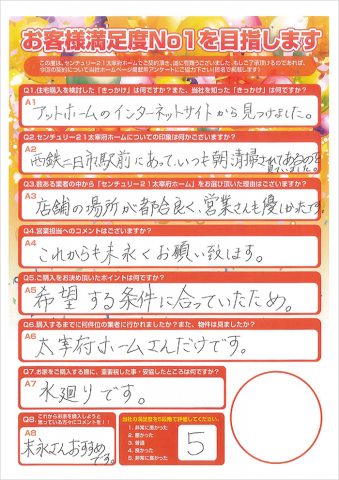 お客様満足度No1を目指します
この度は、センチュリー21太宰府ホームでご契約頂き、誠に有難うございました。もしご了承頂けるのであれば、
今回の契約について当社ホームページ掲載用アンケートにご協力下さい(匿名で掲載します)
Q1.住宅購入を検討した「きっかけ」は何ですか?また、当社を知った「きっかけ」は何ですか?
A1
アットホームのインターネットサイトから見つけました。
Q2.センチュリー21太宰府ホームについての印象は何かございますか?
A2
西鉄二日市駅前にあって、いつも朝清掃されてあるのを
見ていました。
Q3.数ある業者の中から「センチュリー21太宰府ホーム」をお選び頂いた理由はございますか?
A3
店舗の場所が都合良く、営業さんも優しかたです。
Q4.営業担当へのコメントはございますか?
A4
これからも末永くお願い致します。
Q5.ご購入をお決め頂いたポイントは何ですか?
A5
希望する条件に合っていたため。
Q6.購入するまでに何件位の業者に行かれましたか?また、物件は見ましたか?
A6
太宰府ホームさんだけです。
Q7.お家をご購入する際に、重要視した事・妥協したところは何ですか?
A7
水廻りです。
Q8.
これからお家を購入しようと
思っている方々にコメントを!!
A8
末永さんおすすめ
です。
当社の満足度を5段階で評価してください。
1. 非常に悪かった
2. 悪かった
3. 普通
4. 良かった
5. 非常に良かった
5